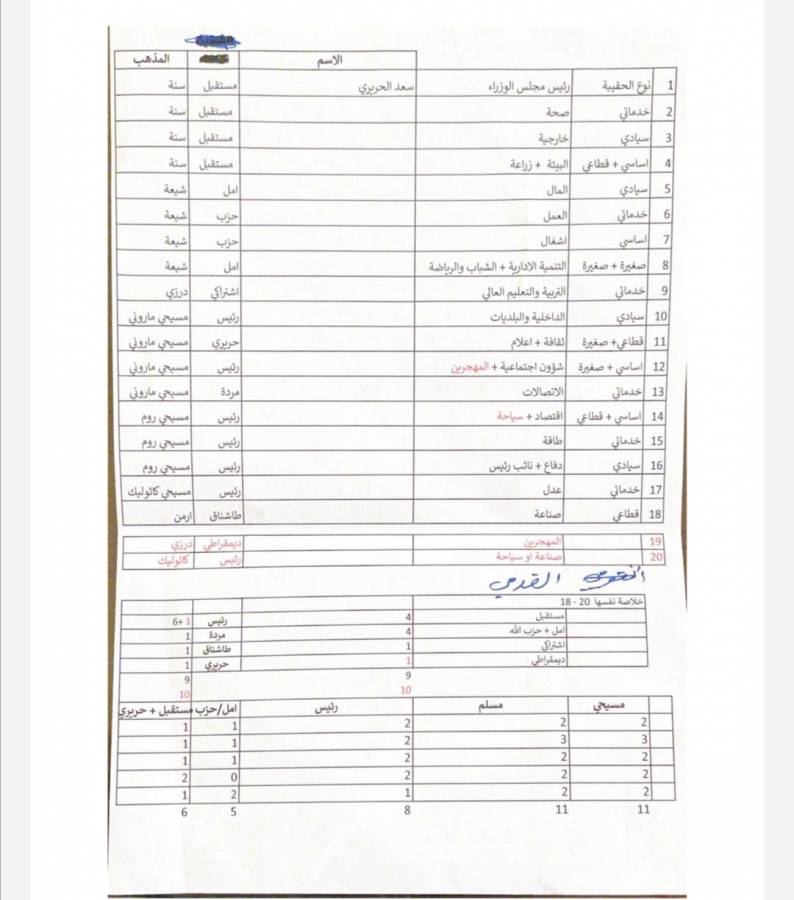 الاسم المذهب
1 نوع الحقيبة رئيس مجلس الوزراء سعد الحريري مستقبل سنة
2 خدماتي صحة مستقبل سنة
3 سيادي خارجية مستقبل سنة
4 اساسي + قطاعي البيئة + زراعة مستقبل سنة
5 سيادي المال امل شيعة
6 خدماتي العمل حزب شيعة
7 اساسي اشغال حزب شيعة
8 صغيرة + صغيرة التنمية الادارية + الشباب والرياضة امل شيعة
9 خدماتي التربية والتعليم العالي اشتراكي درزي
10 سيادي الداخلية والبلديات رئيس مسيحي ماروني
11 قطاعي+ صغيرة ثقافة + اعلام حريري مسيحي ماروني
12 اساسي + صغيرة شؤون اجتماعية + المهجرين رئيس مسيحي ماروني
13 خدماتي الاتصالات مردة مسيحي ماروني
14 اساسي + قطاعي اقتصاد + سياحة رئيس مسيحي روم
15 خدماتي طاقة رئيس مسيحي روم
16 سيادي دفاع + نائب رئيس رئيس مسيحي روم
17 خدماتي عدل رئيس مسيحي كاثوليك
18 قطاعي صناعة طاشناق ارمن
19 المهجرين ديمقراطي درزي
20 صناعة او سياحة رئيس كاثوليك
القومي
18 - 20 خلاصة نفسها
مستقبل 4 رئيس 6+ 1
امل + حزب الله 4 مردة 1
اشتراكي 1 طاشناق 1
ديمقراطي 1 حريري 1
9 9
10 10
مسيحي مسلم رئيس امل/حزب مستقبل + حريري
2 2 2 1 1
3 3 2 1 1
2 2 2 1 1
2 2 2 0 2
2 2 1 2 1
11 11 8 5 6